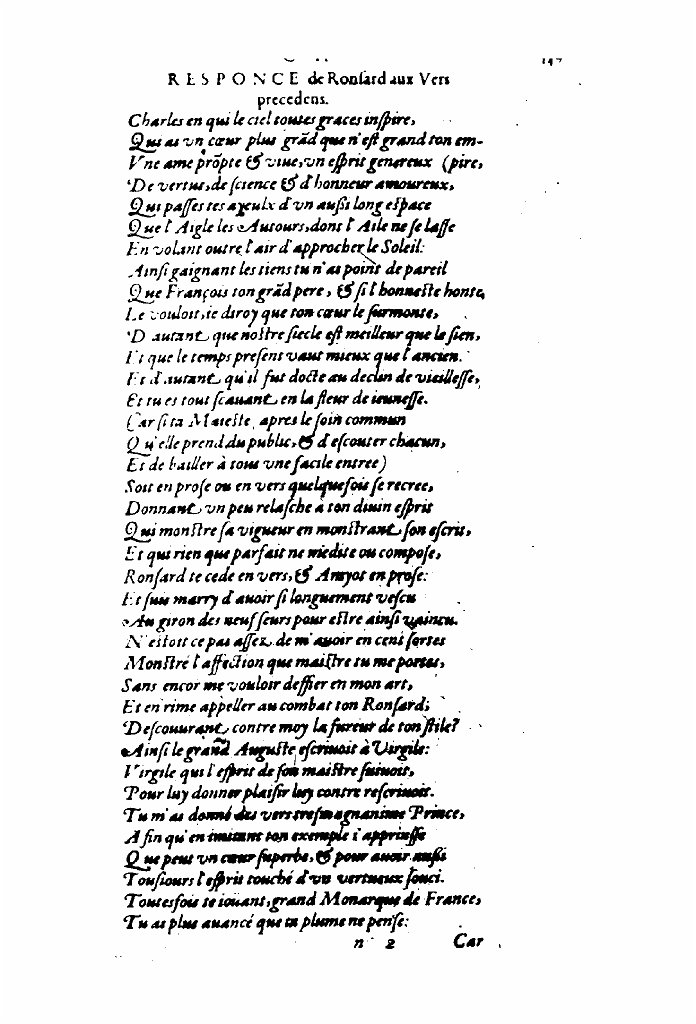 147
RESPONCE de Ronſard aux Vers
precedens.
Charles en qui le ciel toutes graces inſpire,
Qui as vn cœur plus grãd que n'eſt grand ton em-
Vne ame prõpte & viue, vn eſprit genereux (pire,
De vertus, de ſcience & d'honneur amoureux,
Qui paſſes tes ayeulx d'vn auſsi long eſpace
Que l'Aigle les Autours, dont l'Aile ne ſe laſſe
En volant outre l'air d'approcher le Soleil:
Ainſi gaignant les tiens tu n'as point de pareil
Que François ton grãd pere, & ſi l'honneſte honte,
Le vouloit, ie diroy que ton cœur le ſurmonte,
D'autant que noſtre ſiecle eſt meilleur que le ſien,
Et que le temps preſent vaut mieux que l'ancien.
Et d'autant qu'il fut docte au declin de vieilleſſe,
Et tu es tout ſcauant en la fleur de ieuneſſe.
Car ſi ta Maieſte, apres le ſoin commun
Qu'elle prend du public, & d'eſcouter chacun,
Et de bailler à tous vne facile entree)
Soit en proſe ou en vers quelquefois ſe recree,
Donnant vn peu relaſche à ton diuin eſprit
Qui monſtre ſa vigueur en monſtrant ſon eſcrit,
Et qui rien que parfait ne medite ou compoſe,
Ronſard te cede en vers, & Amyot en proſe:
Et ſuis marry d'auoir ſi longuement veſcu
Au giron des neuf ſeurs pour eſtre ainſi vaincu.
N'eſtoit ce pas aſſez de m'auoir en cent ſortes
Monſtré l'affection que maiſtre tu me portes,
Sans encor me vouloir deffier en mon art,
Et en rime appeller au combat ton Ronſard;
Deſcouurant contre moy la fureur de ton ſtile?
Ainſi le grand Auguſte eſcriuoit à Virgile:
Virgile qui l'eſprit de ſon maiſtre ſuiuoit,
Pour luy donner plaiſir luy contre reſcriuoit.
Tu m'as donné des vers treſmagnanime Prince,
A fin qu'en imitant ton exemple i'apprinſſe
Que peut vn cœur ſuperbe, & pour auoir auſsi
Touſiours l'eſprit touché d'vn vertueux ſouci.
Toutesfois te iouant, grand Monarque de France,
Tu as plus auancé que ta plume ne penſe:
n 2 Car